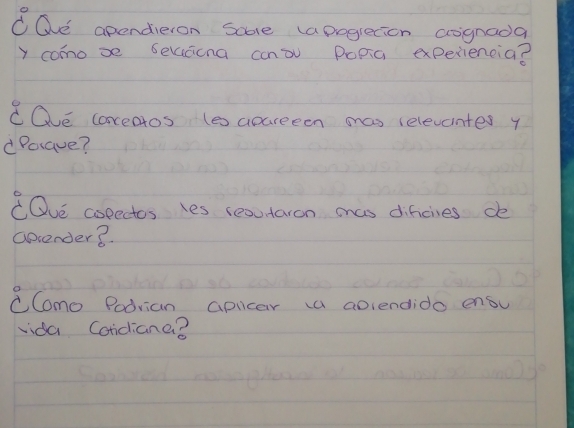 ¿Qué apendieron Sobre la progrecion asignada
y cómo se relaciona con su Popia experiencia?
¿Qué conceptos les apareeen mas relevantes y
¿Porque?
¿Qué aspectos les resultaron mas dificiles de
aprender?.
¿Como Podrian aplicar la aprendido en su
vida Cotidiana?